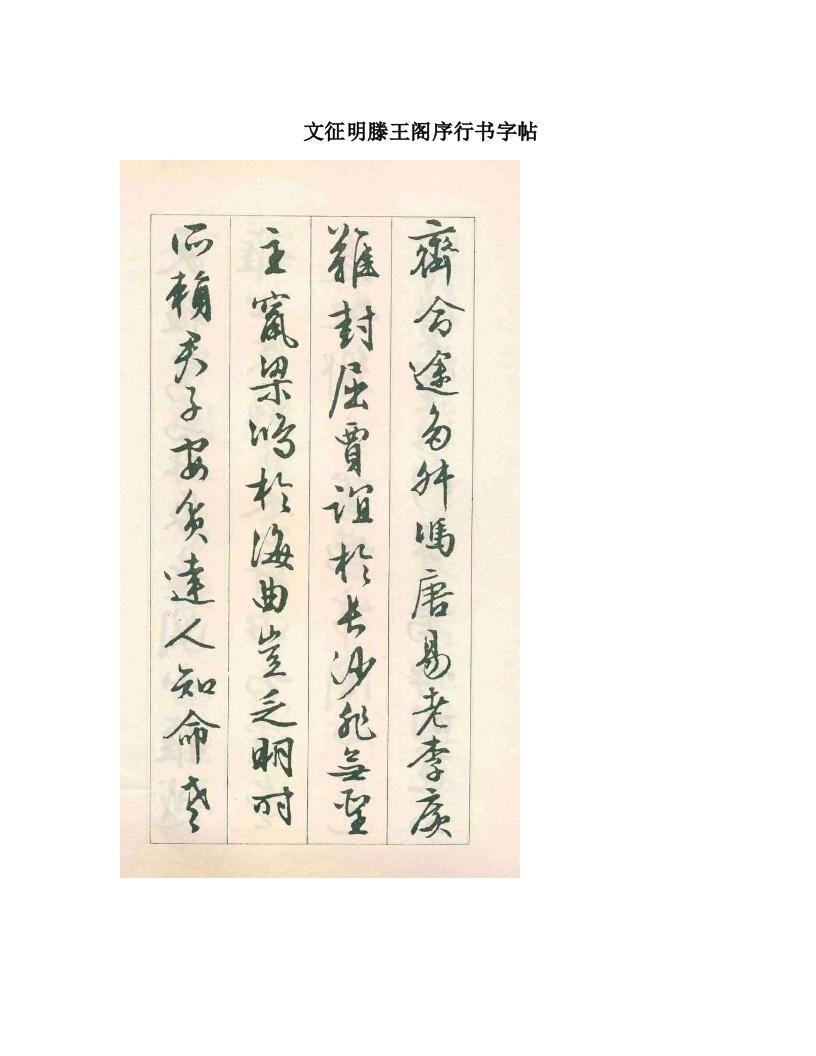 文征明滕王阁序行书字帖
齊命途多舛馮唐易老李廣
難封屈賈誼於長沙非無聖
主竄梁鴻於海曲豈乏明時
所賴君子安貧達人知命老